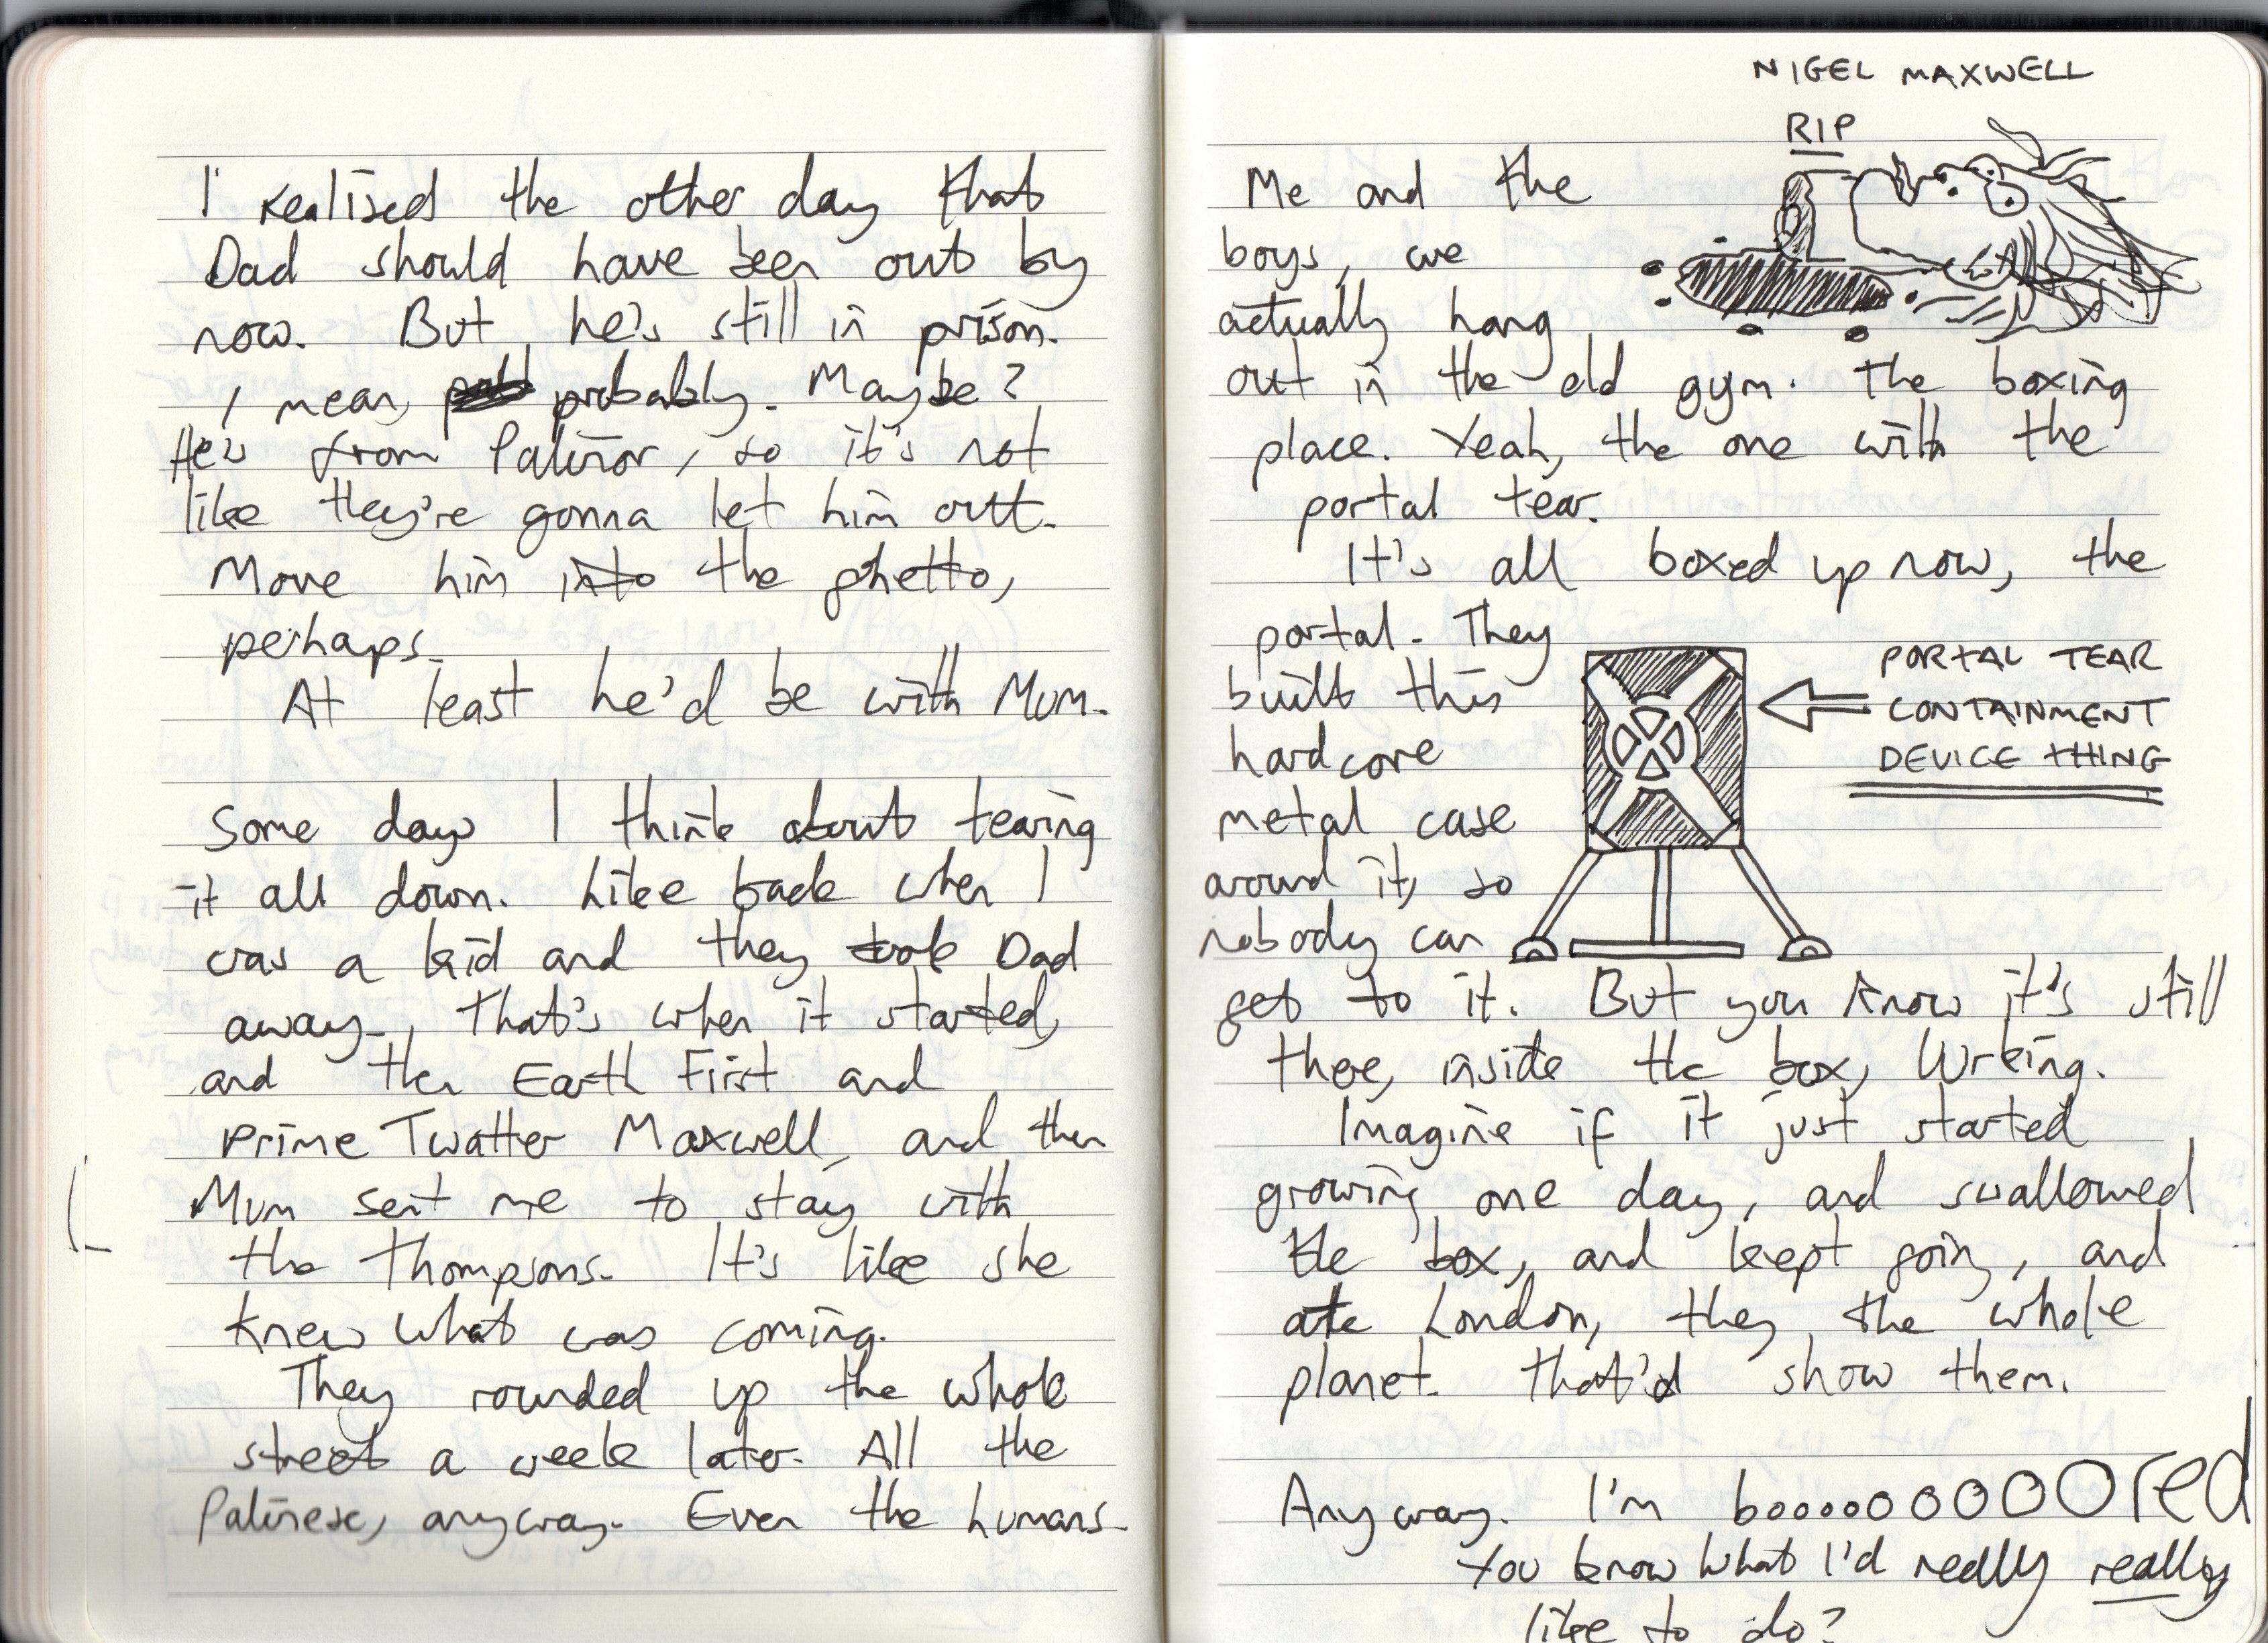 I realised the other day that
Dad should have been out by
now. But he's still in prison.
I mean, probably. Maybe?
He's from Palinor, so it's not
like they're gonna let him out.
Move him into the ghetto,
perhaps.
At least he'd be with Mum.
Some days I think about tearing
it all down. Like back when I
was a kid and they took Dad
away. That's when it started,
and then Earth First and
Prime Twatter Maxwell, and then
Mum sent me to stay with
the Thompsons. It's like she
knew what was coming.
They rounded up the whole
street a week later. All the
Palinese, anyway. Even the humans.
NIGEL MAXWELL
RIP
Me and the
boys, we
actually hang
out in the old gym. The boxing
place. Yeah, the one with the
portal tear.
It's all boxed up now, the
portal. They
built this
hardcore
metal case
around it, so
nobody can
get to it. But you know it's still
there, inside the box, lurking.
PORTAL TEAR
CONTAINMENT
DEVICE THING
Imagine if it just started
growing one day, and swallowed
the box, and kept going, and
ate London, they the whole
planet. That'd show them.
Anyway. I'm boooooooooored
You know what I'd really really
like to do?